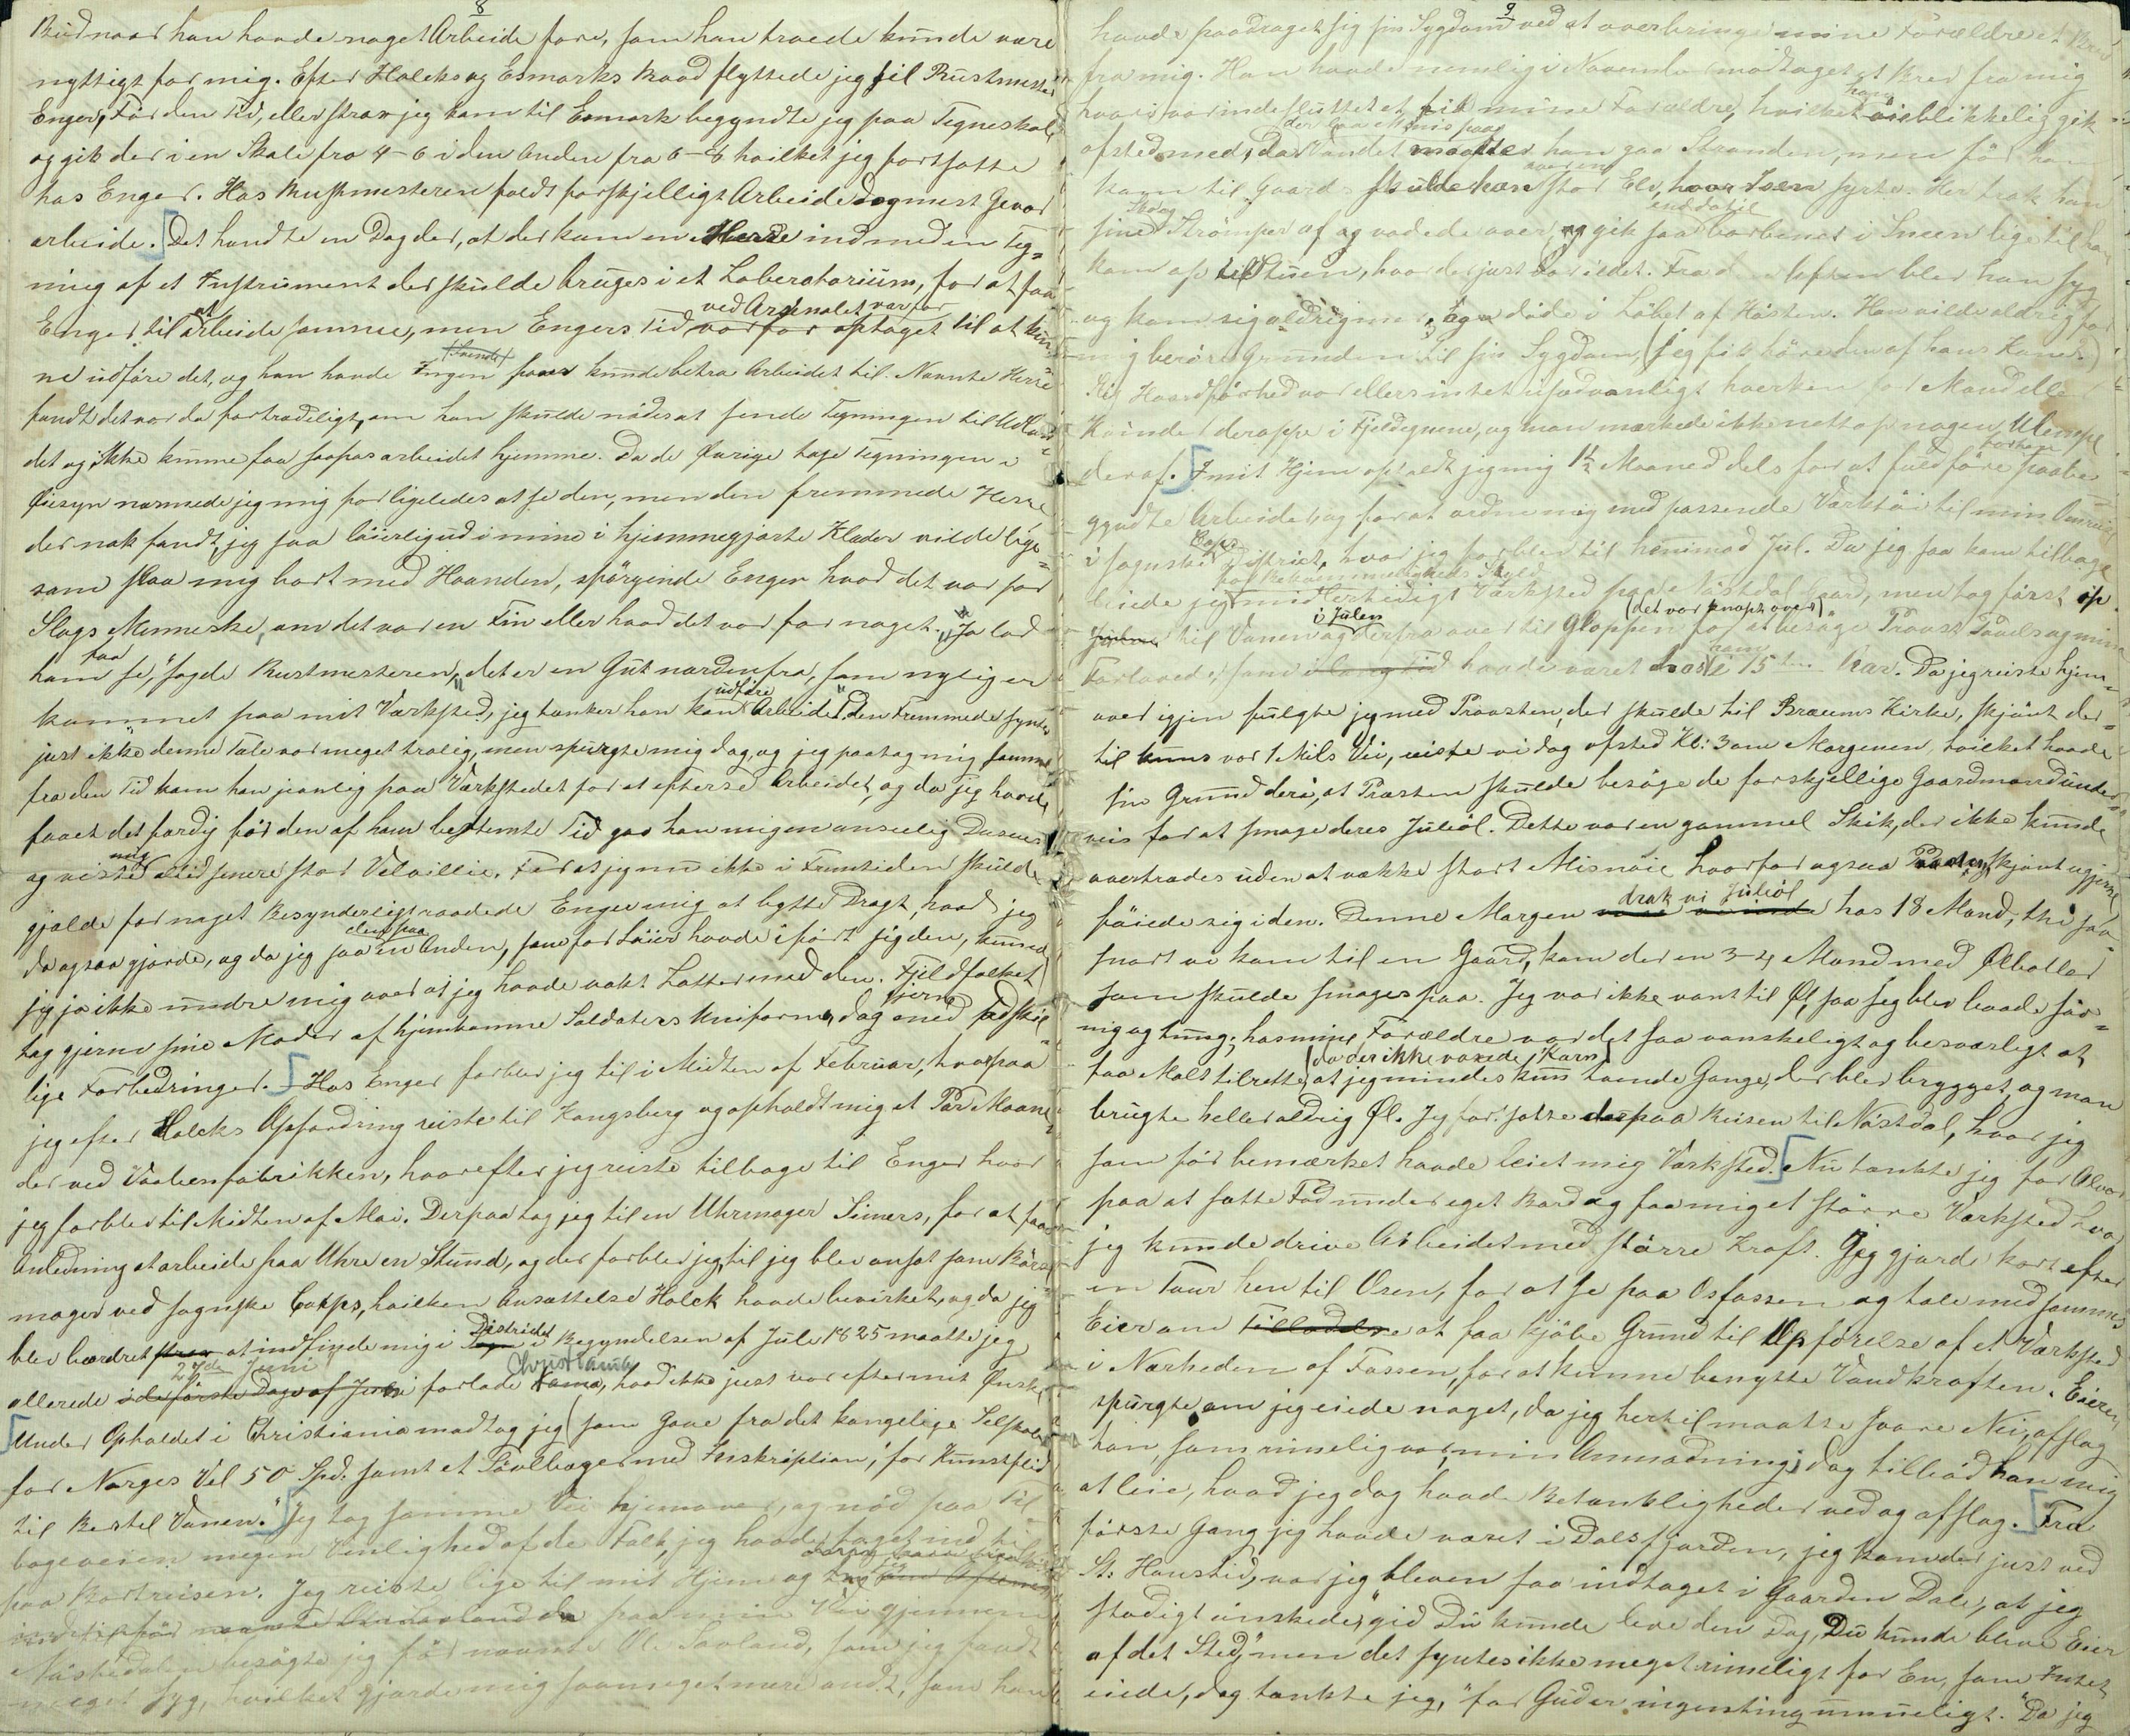 8
Bud naar han havde noget Arbeide fore, som han troede kunde være
nyttigt for mig. Efter Holcks og Esmarks Raad flyttede jeg til Rustmester
Enger, Før den Tid, eller strax jeg kom til Esmark begyndte jeg paa Tegneskole
og gik der i en Skole fra 4-6 i den Anden fra 6-8 hvilket jeg fortsatte
hos Enger. Hos Rustmesteren faldt forskjelligt Arbeide dog mest Gevær
arbeide. Det hændte en Dag der, at der kom en Herre ind med en Teg=
ning af et Instrument der skulde bruges i et Laboratorium, for at faa
ved Arsenalet var for
Enger til at arbeide samme, men Engers Tid var for optaget til at kun=
ne udføre det, og han havde Ingen paa kunde betro Arbeidet til. Nævnte Herre
fandt det var da fortrædeligt, om han skulde nødes at sende Tegningen til Udlan=
det og ikke kunne faa saapas arbeidet hjemme. Da de Øvrige tog Tegningen i
Øiesyn nærmede jeg mig for ligeledes at se den, men den fremmede Herre
der nok fandt, jeg saa løierlig ud i mine i hjemmegjorte Klæder vilde lige=
som slaa mig bort med Haanden, spørgende Enger hvad det var for
Slags Menneske, om det var en Fin eller hvad det var for noget. "Ja lad
ham faa se," sagde Rustmesteren, "det er en Gut nordenfra, som nylig er
kommet paa mit Værksted, jeg tænker han kan udføre Arbeidet". Den Fremmede syntes
just ikke denne Tale var meget trolig, men spurgte mig dog, og jeg paatog mig samme
fra den Tid kom han jevnlig paa Værkstedet for at efterse Arbeidet, og da jeg havde
faaet det færdig før den af ham bestemte Tid gav han mig en anseelig Douceur
og viste mig altid senere stor Velvillie. For at jeg nu ikke i Fremtiden skulde
gjælde for noget Besynderligt raadede Enger mig at bytte Dragt, hvad jeg
da ogsaa gjorde, og da jeg saa den paa en Anden, som for Løier havde iført sig den, kunde
jeg jo ikke undre mig over at jeg havde vakt Latter med den. Fjeldfolket
tog gjerne sine Moder af hjemkomne Soldaters Uniform, dog gjerne med adskil=
lige Forbedringer. Hos Enger forblev jeg til i Midten af Februar, hvorpaa
jeg efter Holcks Opfordring reiste til Kongsberg og opholdt mig et Par Maane=
der ved Vaabenfabrikken, hvorefter jeg reiste tilbage til Enger hvor
jeg forblev til Midten af Mai. Derpaa tog jeg til en Uhrmager Simers, for at faa
Anledning at arbeide paa Uhre en Stund, og der forblev jeg, til jeg blev ansat som Børse
mager ved sognske Corps, hvilken Ansættelse Holck havde bevirket, og da jeg
blev beordret at indfinde mig i Districtet i Begyndelsen af Juli 1825 maatte jeg
allerede 27de Juni i de første Dage af Juni forlade Christiania, hvad ikke just var efter mit Ønske.
Under Opholdet i Christiania modtog jeg (som Gave fra det kongelige Selskab
for Norges Vel 50 Spd. samt et Sølvbæger med Inskription, "for Kunstflid
til Bertel Vanen." Jeg tog samme Vei hjemover, og nød paa Til=
bageveien megen Venlighed af de Folk, jeg havde taget ind til
paa Bortreisen. Jeg reiste lige til mit Hjem og
paa min Vei gjennem
besøgte jeg før nævnte Ole Savland, som jeg fandt
meget syg, hvilket gjorde mig saameget mere ondt, som han
9
havde paadraget sig sin Sygdom ved at overbringe mine Forældre et Brev
fra mig. Han havde nemlig i November modtaget et Brev fra mig
hvori var indesluttet et til mine Forældre, hvilket han øieblikkelig gik
der laa Is paa
afsted med, da Vandet maatte han gaa Stranden, men før han
over en
kom til Gaard skulde han stor Elv, hvor Isen . Her trak han
Sko og endda til
sine Strømper af og vadede over, og gik saa barbenet i Sneen lige til han
kom op til Stuen, hvor der just var ildet. Fra den Aften blev han syg
og kom sig aldrig mere, og døde i Løbet af Høsten. Han vilde aldrig for
mig berøre Grunden til sin Sygdom, (jeg fik høre den af hans Kone.)
Slig Haardførhed var ellers intet usædvanligt hverken for Mand eller
Kvinde deroppe i Fjeldegnene, og man mærkede ikke netop nogen Ulempe
deraf. I mit Hjem opholdt jeg mig 1½ Maaned dels for at fuldføre forhen paabe=
gyndte Arbeider, og for at ordne mig med passende Værktøi til min Omreise
i sognske Corps District, hvor jeg forblev til henimod Jul. Da jeg saa kom tilbage
for Bekvemmeligheds Skyld
leiede jeg midlertidigt Værksted paa Nøstdal Gaard, men tog først op
i Julen (det var knapt over)
til Vanen og derfra over til Gloppen for at besøge Provst Pavels og min
Forlovede, som i lang Tid havde været hos ham i 15 Aar. Da jeg reiste hjem=
over igjen fulgte jeg med Provsten, der skulde til Breums Kirke, skjønt der=
til kuns var 1 Mils Vei, reiste vi dog afsted Kl: 3 om Morgenen, hvilket havde
sin Grund deri, at Præsten skulde besøge de forskjellige Gaardmænd under=
veis for at smage deres Juleøl. Dette var en gammel Skik, der ikke kunde
overtrædes uden at vække stort Misnøie hvorfor ogsaa Provsten, skjønt ugjerne
føiede sig i den. Denne Morgen drak vi Juleøl hos 18 Mand, thi saa=
snart vi kom til en Gaard, kom der en 3-4 Mand med Ølboller
som skulde smages paa. Jeg var ikke vant til Øl, saa jeg blev baade søv=
nig og tung; hos mine Forældre var det saa vanskeligt og besværligt at
(da der ikke voxede Korn)
faa Malt tilrette, at jeg mindes kun tvende Gange, der blev brygget, og man
brugte heller aldrig Øl. Jeg fortsatte derpaa Reisen til Nøstdal, hvor jeg
som før bemærket havde leiet mig Værksted. Nu tænkte jeg for Alvor
paa at sætte Fod under eget Bord og faa mig et større Værksted hvor
jeg kunde drive Arbeidet med større Kraft. Jeg gjorde kort efter
en Tour hen til Osen, for at se paa Osfossen og tale med sammes
Eier om Tilladelse at faa kjøbe Grund til Opførelse af et Værksted
i Nærheden af Fossen, for at kunne benytte Vandkraften. Eieren
spurgte om jeg eiede noget, da jeg hertil maatte svare Nei, afslog
han, som rimelig var, min Anmodning; dog tilbød han mig
at leie, hvad jeg dog havde Betænkligheder ved og afslog. Fra
første Gang jeg havde været i Dalsfjorden, jeg kom der just ved
St: Hanstid, var jeg bleven saa indtaget i Gaarden Dale, at jeg
stadigt ønskede, "gid Du kunde leve den Dag, Du kunde blive Eier
af det Sted," men det syntes ikke meget rimeligt for En, som Intet
eiede, dog tænkte jeg, "for Gud er ingenting umueligt." Da jeg